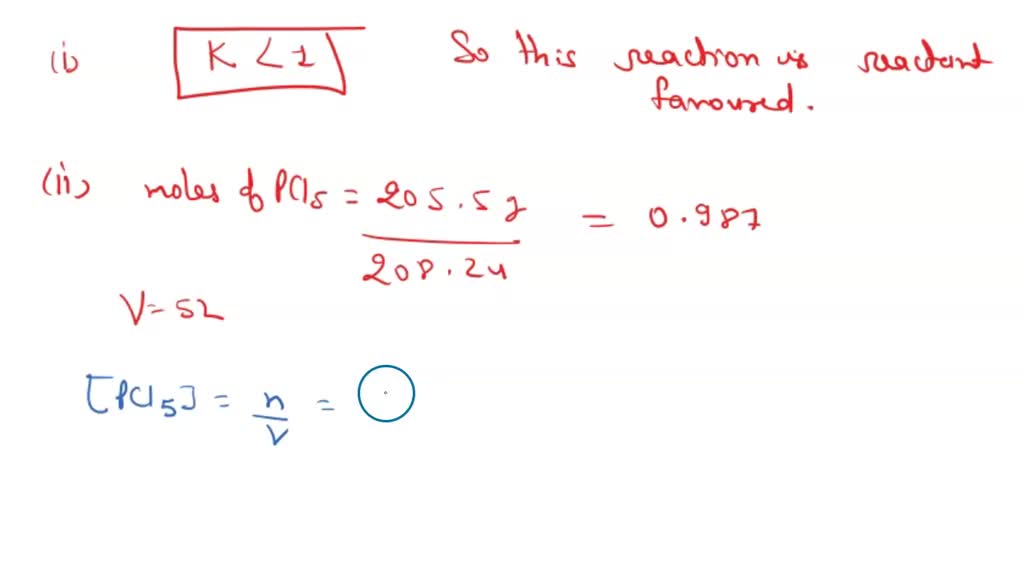 (i) K < 1 So this reaction is reactant
favoured.
(ii) moles of PCl5 = 205.5g / 208.24 = 0.987
V= 5L
[PCl5] = n/V =